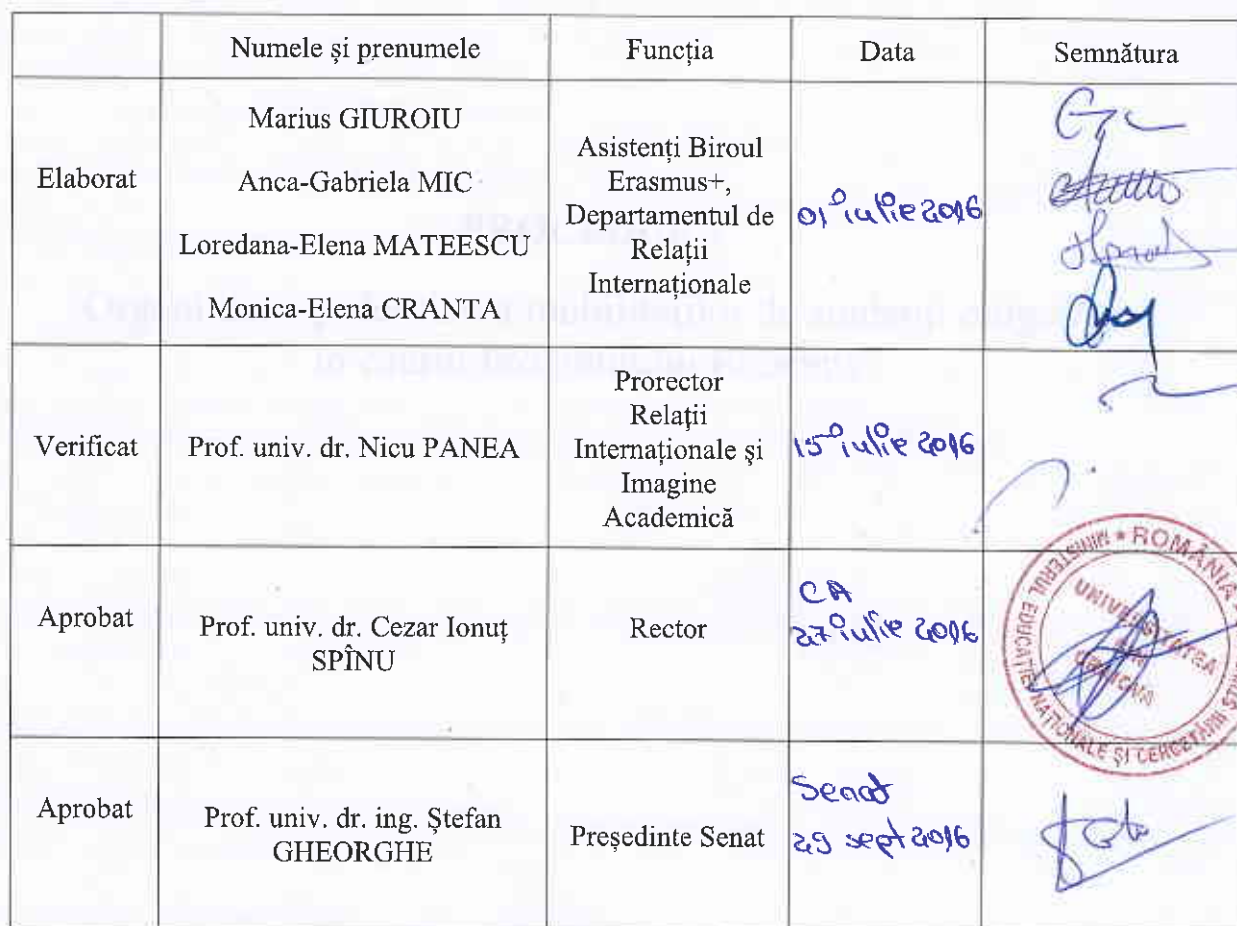 Numele și prenumele
Funcția
Data
Semnătura
Elaborat
Marius GIUROIU
Anca-Gabriela MIC
Loredana-Elena MATEESCU
Monica-Elena CRANTA
Asistenți Biroul
Erasmus+,
Departamentul de
Relații
Internaționale
01 iulie 2016
Verificat
Prof. univ. dr. Nicu PANEA
Prorector
Relații
Internaționale și
Imagine
Academică
15 iulie 2016
Aprobat
Prof. univ. dr. Cezar Ionuț
SPÎNU
Rector
CA
27 iulie 2016
ROMÂNIA * MINISTERUL EDUCAȚIEI NAȚIONALE ȘI CERCETĂRII
UNIVERSITATEA
DIN
CRAIOVA
Aprobat
Prof. univ. dr. ing. Ștefan
GHEORGHE
Președinte Senat
Senat
29 sept 2016